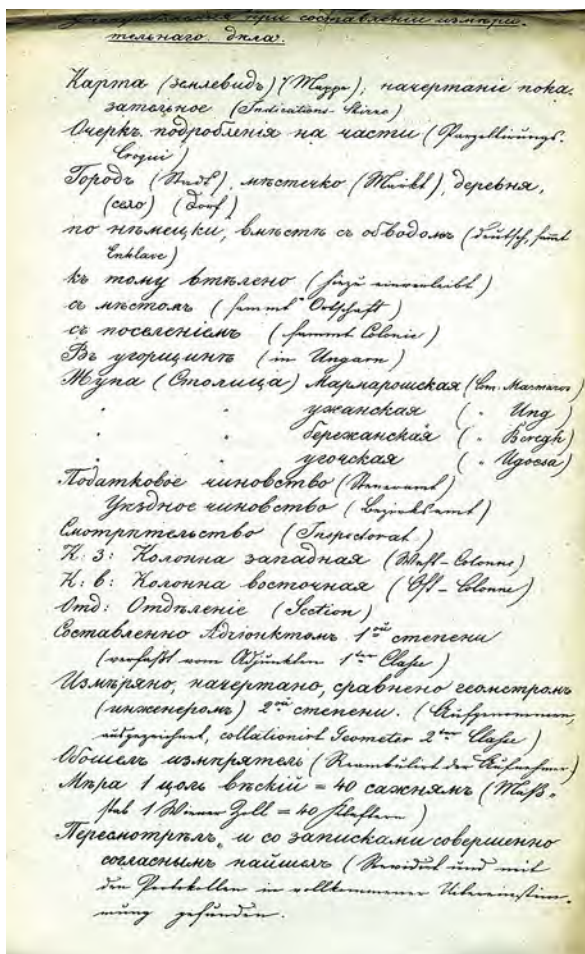 при составленіи измѣри-
тельнаго дѣла.
Карта (землевидъ) (Mappe), начертаніе пока-
зательное (Indications-Skizze)
Очеркъ подробленія на части (Parzellirungs-
Croqui)
Городъ (Stadt), мѣстечко (Markt), деревня,
(село) (Dorf)
по нѣмецки, вмѣстѣ съ обводомъ (deutsch, samt
Enklave)
къ тому втѣлено (hiezu einverleibt)
съ мѣстомъ (sammt Ortschaft)
съ поселеніемъ (sammt Colonie)
Въ угорщинѣ (in Ungarn)
Жупа (Столица) Мармарошская (Com. Marmaros)
" " ужанская ( " Ung)
" " бережанская ( " Beregh)
" " угочская ( " Ugocsa)
Податковое чиновство (Steueramt)
Уѣздное чиновство (Bezirksamt)
Смотрительство (Inspectorat)
К: З: Колонна западная (West-Colonne)
К: в: Колонна восточная (Ost-Colonne)
Отд: Отдѣленіе (Section)
Составленно Адюнктомъ 1ой степени
(verfaßt vom Adjunkten 1ter Classe)
Измѣряно, начертано, сравнено геометромъ
(инженеромъ) 2ой степени. (Aufgenommen,
ausgezeichnet, collationirt Geometer 2ter Classe)
Обошелъ измѣрятель (Reambulirt der Aufnehmer)
Мѣра 1 цоль вѣскій = 40 сажнямъ (Maß-
stab 1 Wiener Zoll = 40 Klaftern)
Пересмотрѣлъ, и со записками совершенно
согласнымъ найшелъ (Revidirt und mit
den Protokollen in vollkommener Uibereinstim-
mung gefunden.